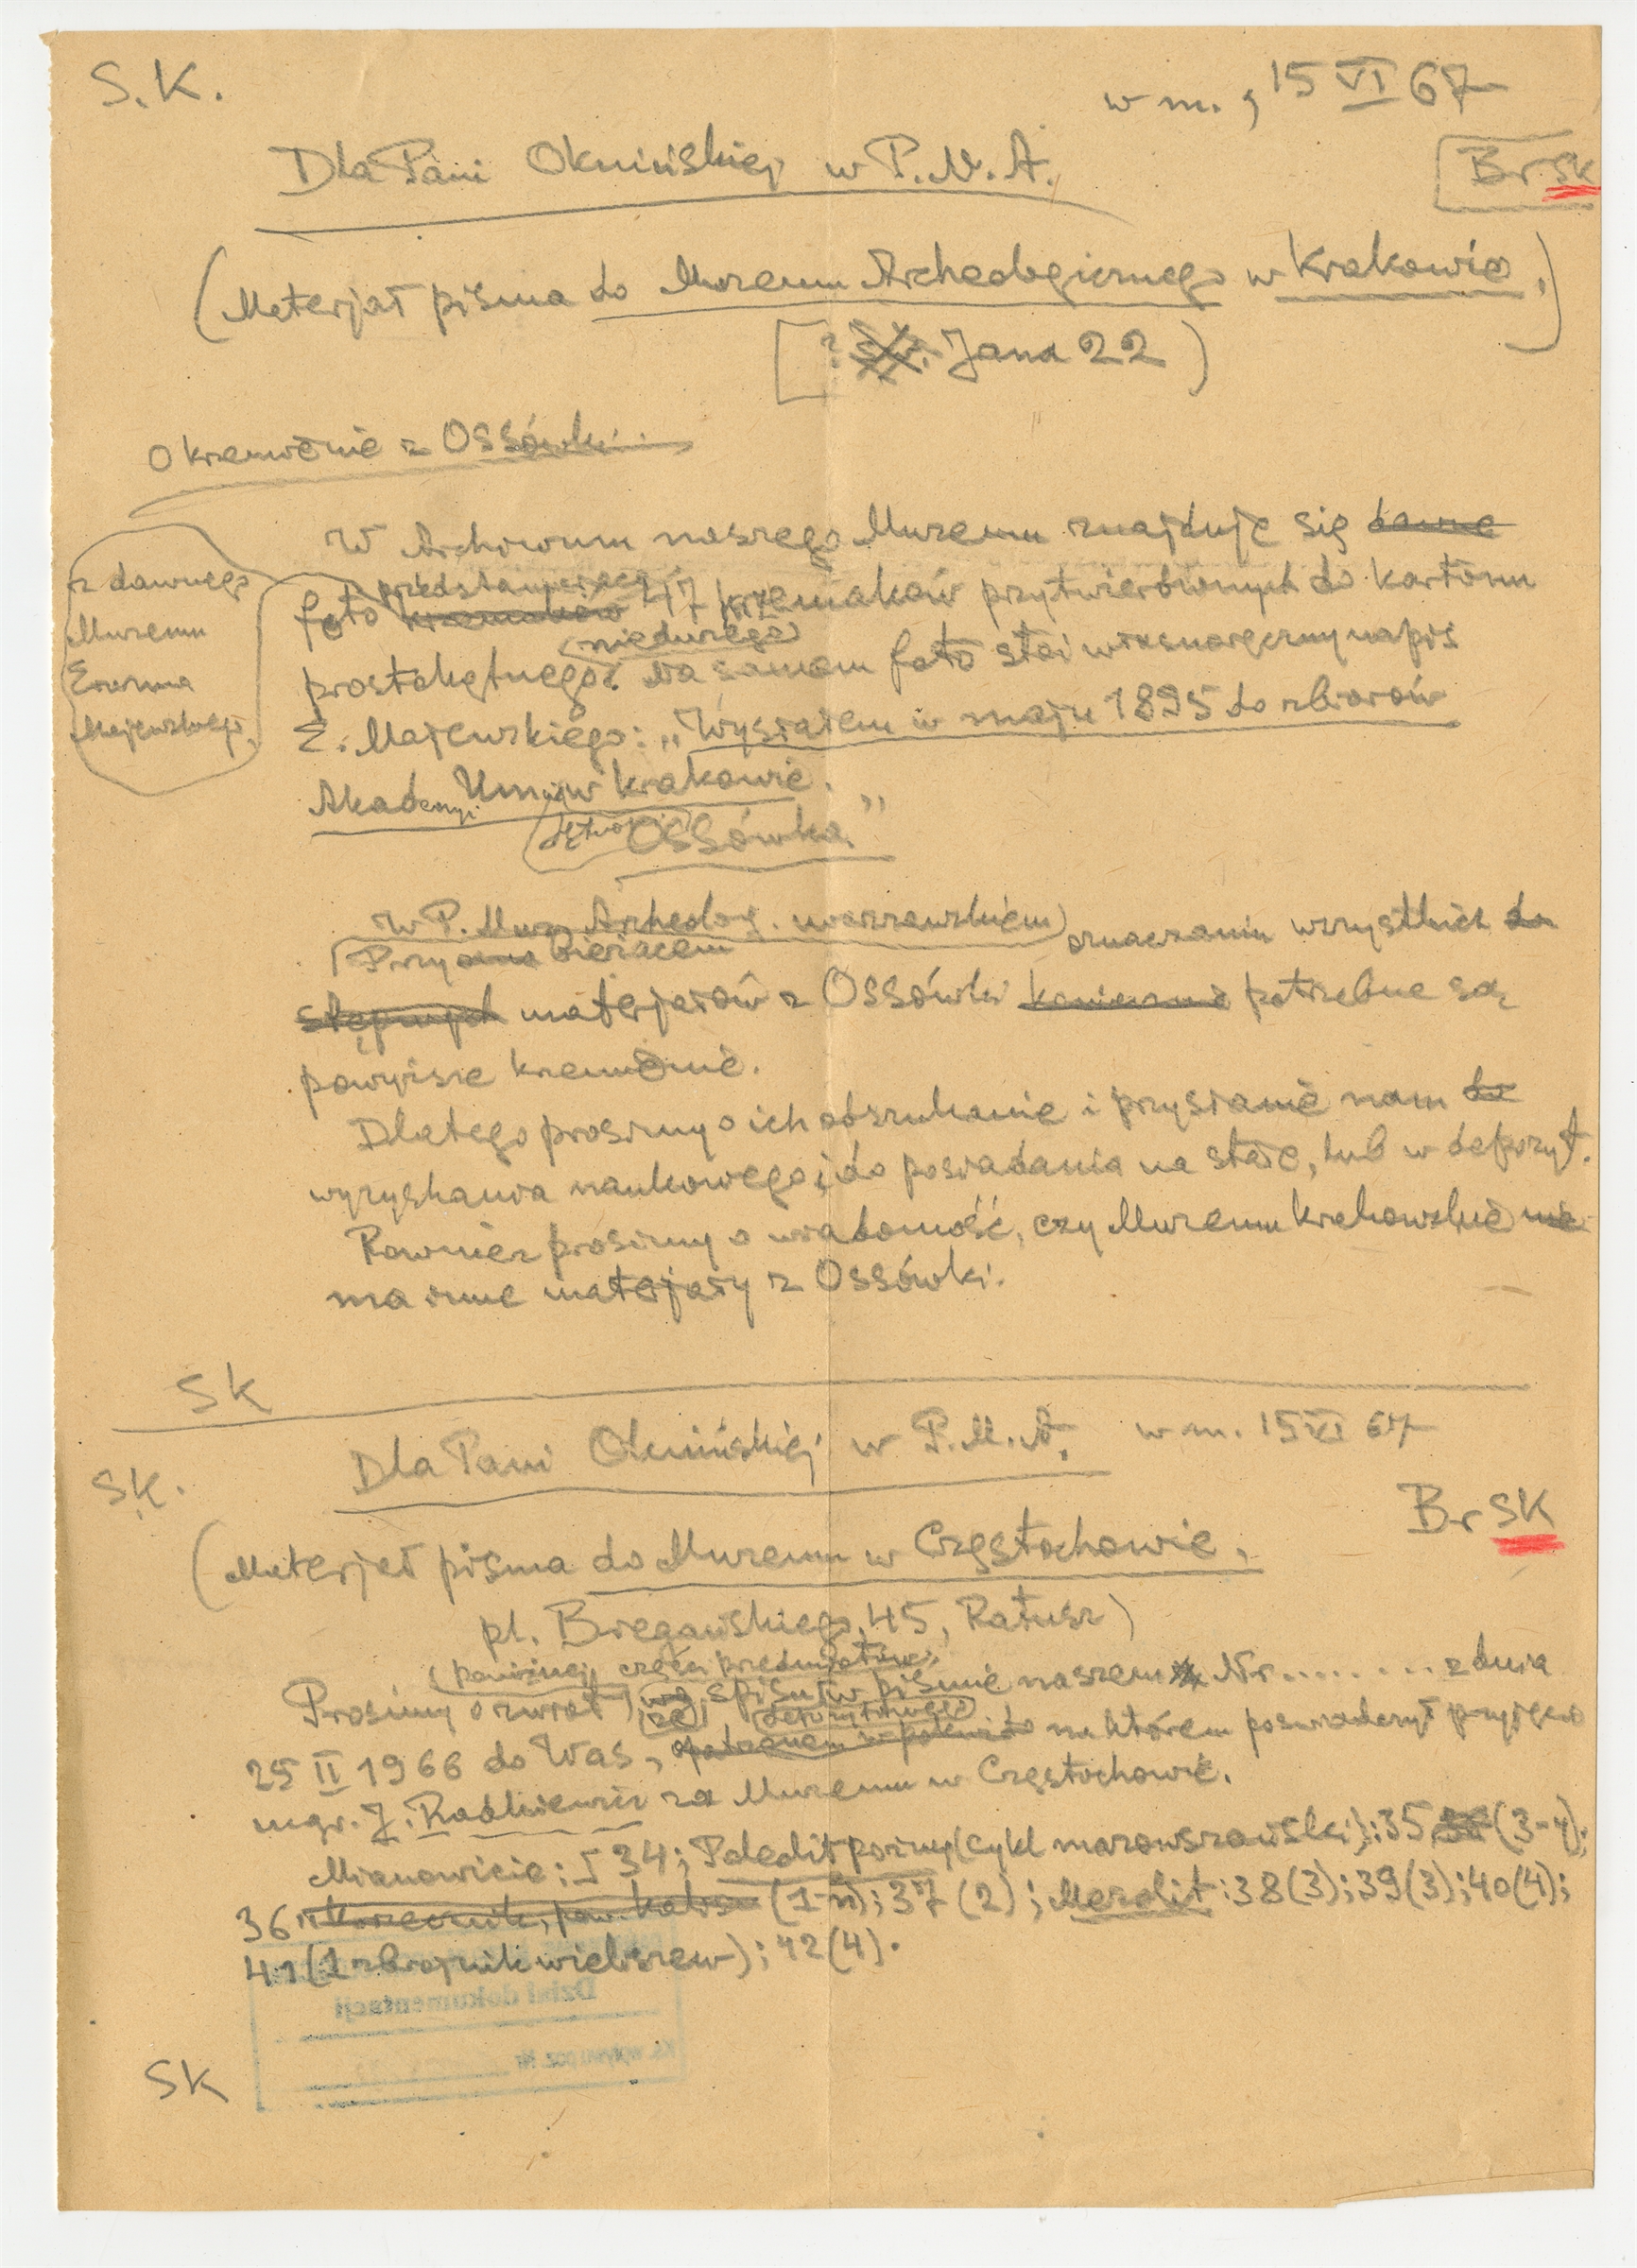 S.K.
w m., 15 VI 67
Dla Pani Oknińskiej w P.M.A.
Br SK
(Materjał pisma do Muzeum Archeologicznego w Krakowie,
[? św. Jana 22)
O krzemienie z Ossówki
W Archiwum naszego Muzeum znajduje się dawne
z dawnego
Muzeum
Erazma
Majewskiego,
przedstawiające
foto krzemaków 47 krzemaków przytwierdzonych do kartonu
(niedużego)
prostokątnego. Na samem foto stoi własnoręczny napis
E. Majewskiego: „Wysłałem w maju 1895 do zbiorów
Akademyi Umiej w Krakowie.
Ossówka"
W P. Muz. Archeolog. warszawskiem)
(Przy bieżącem oznaczaniu wszystkich do
stępnych materjałów z Ossówki koniecznie potrzebne są
powyższe krzemienie.
Dlatego prosimy o ich odszukanie i przysłanie nam do
wyzyskania naukowego i do posiadania na stałe, lub w depozyt.
Rownież prosimy o wiadomość, czy Muzeum krakowskie nie
ma inne materjały z Ossówki.
SK
Dla Pani Oknińskiej w P.M.A. w m. 15 VI 67
SK.
Br SK
(Materjał pisma do Muzeum w Częstochowie,
pl. Biegańskiego 45, Ratusz)
(poniższej części przedmiotów,
Prosimy o zwrot (ze) spisu w piśmie naszem Nr ........ z dnia
(depozytowego)
25 II 1966 do Was, na którem poświadczył przyjęcie
mgr. J. Radkiewicz za Muzeum w Częstochowie.
Mianowicie: 34; Paleolit pozny (cykl mazowszański): 35 (3-4);
36 Korzecznik, pow. Kolski (1-11); 37 (2); Mezolit: 38(3); 39(3); 40(4);
41 (1 zbrojnik wielorzew); 42 (4).
Dział dokumentacji
Ks. wpływu poz. Nr
SK